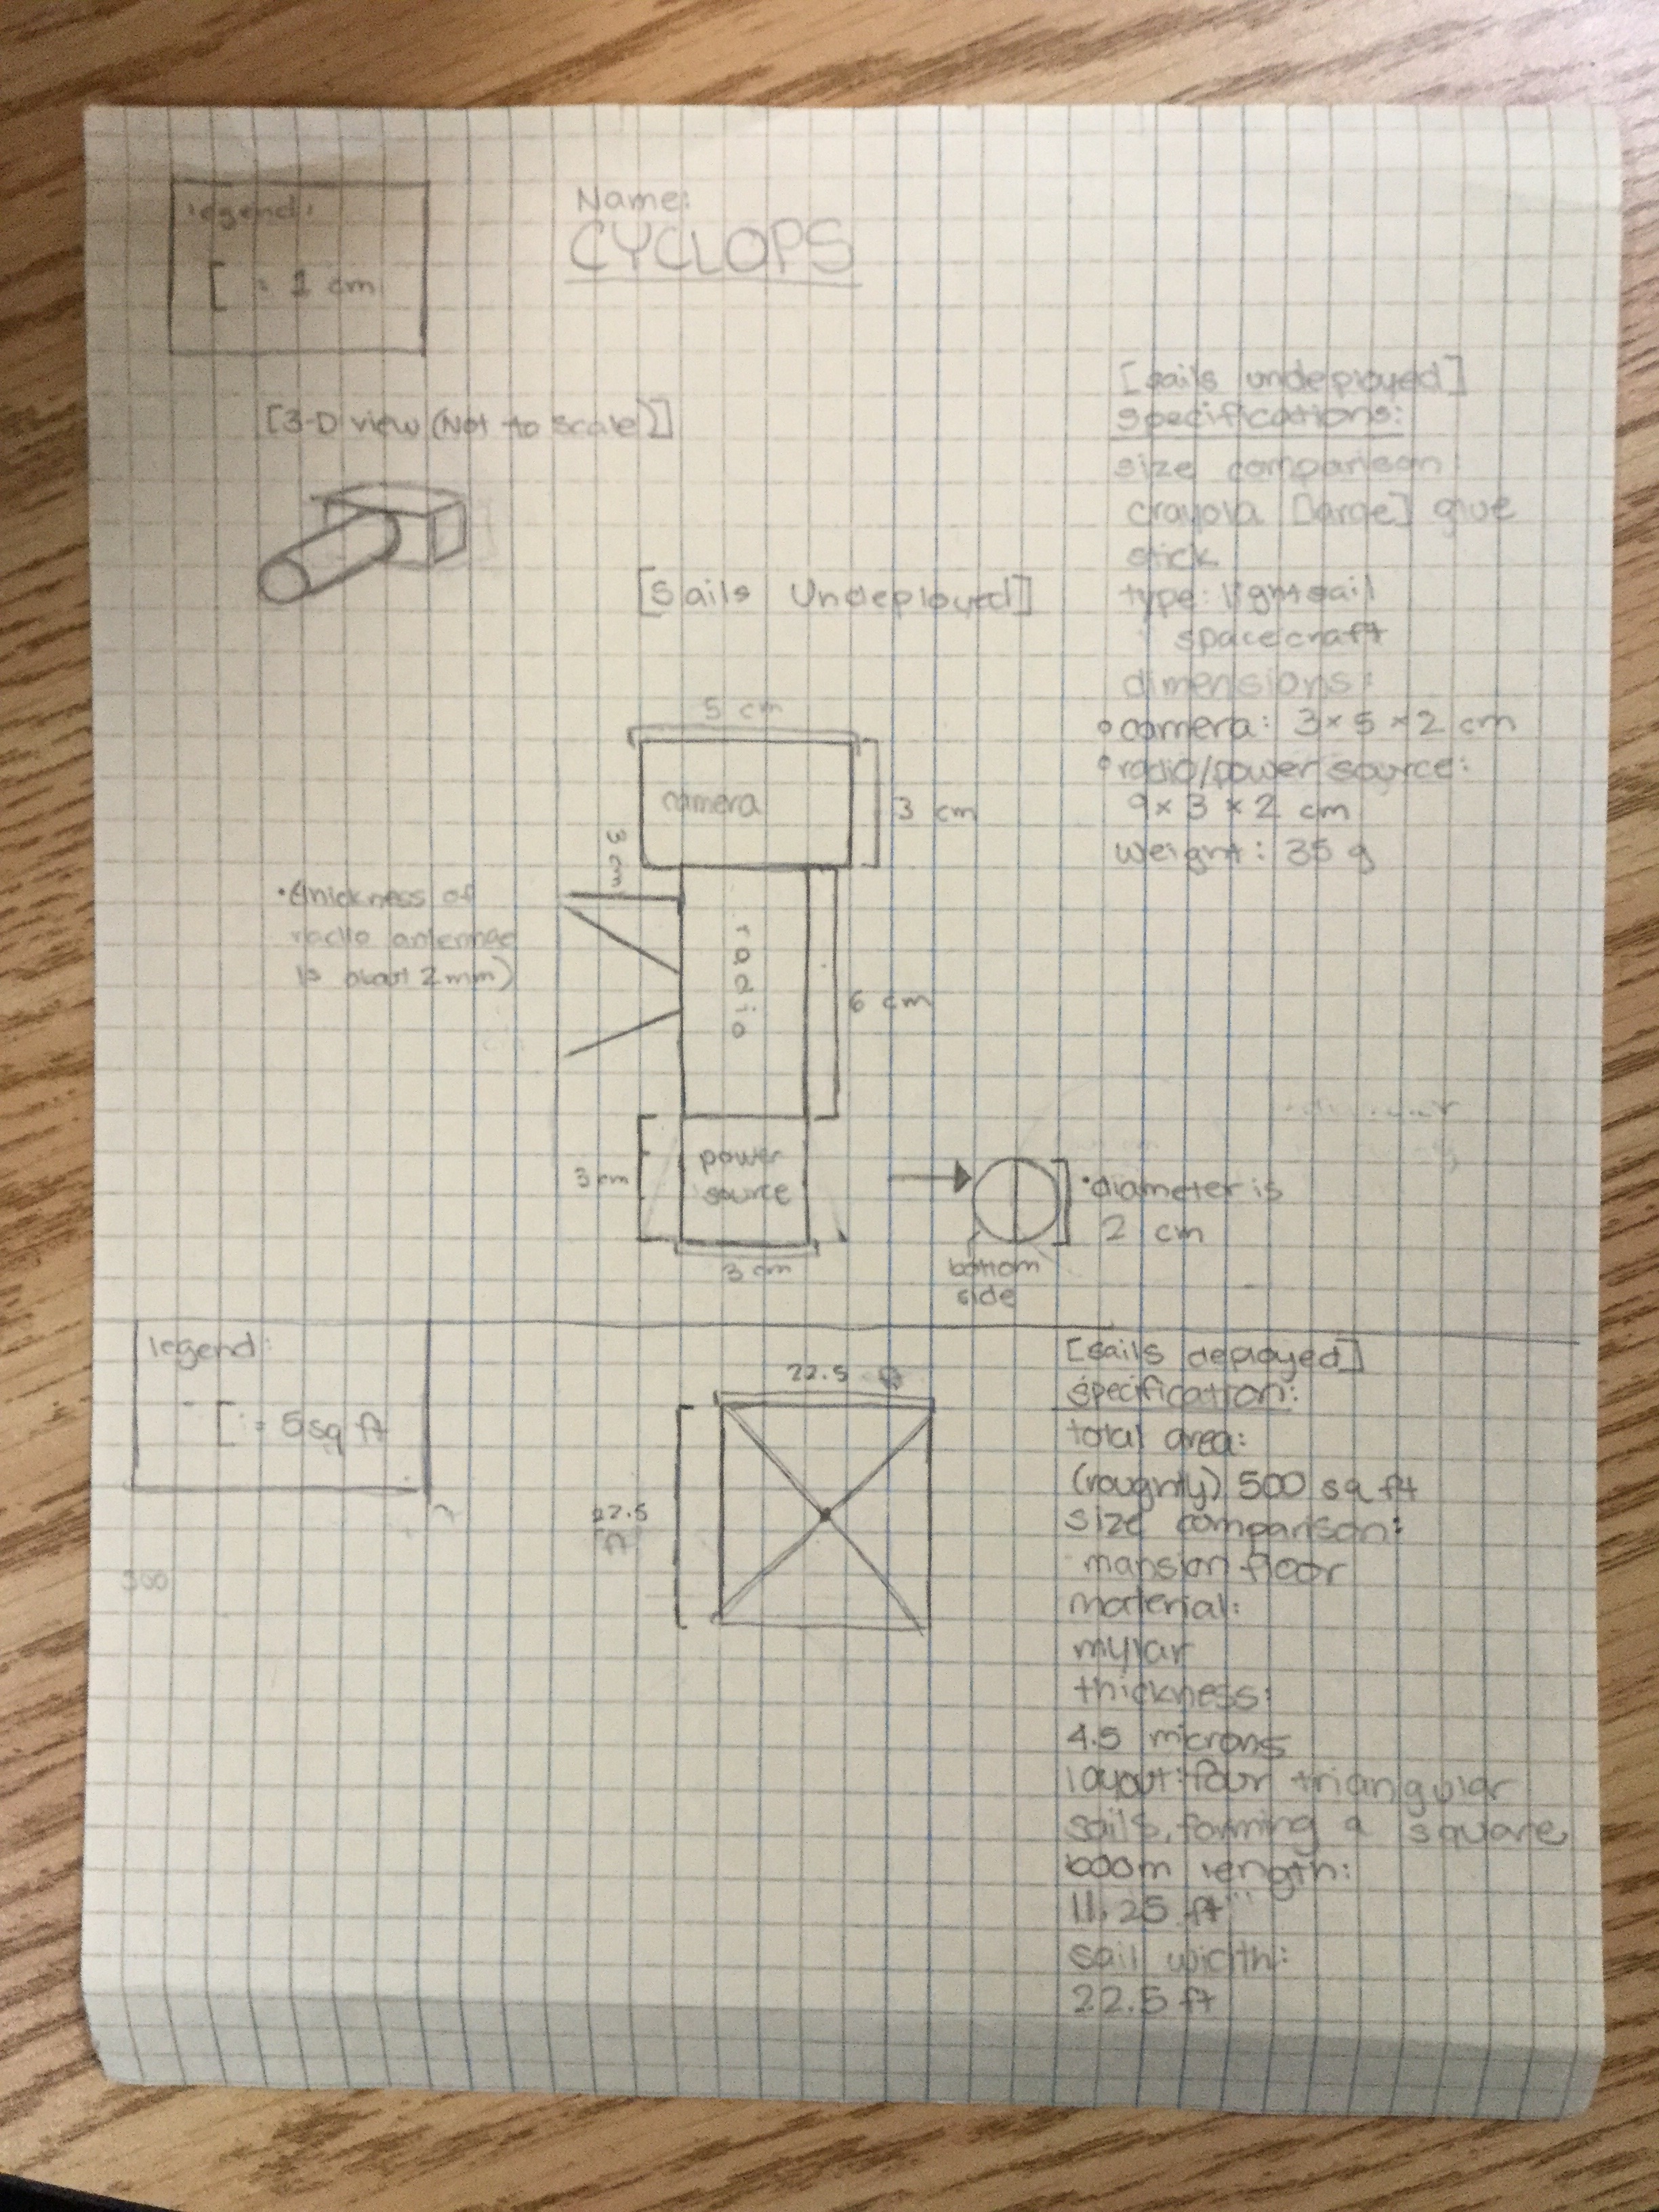 legend:
[ = 1 cm
Name:
CYCLOPS
[3-D view (Not to scale)]
[Sails Undeployed]
[sails undeployed]
specifications:
size comparison:
crayola [large] glue
stick
type: lightsail
spacecraft
dimensions:
• camera: 3 × 5 × 2 cm
• radio/power source:
9 × 3 × 2 cm
weight: 35 g
5 cm
camera
3 cm
3 cm
• thickness of
radio antennae
is about 2 mm)
radio
6 cm
power
source
3 cm
3 cm
bottom
side
• diameter is
2 cm
legend:
[ = 5 sq ft
22.5 ft
22.5
ft
300
[sails deployed]
specification:
total area:
(roughly) 500 sq ft
size comparison:
mansion floor
material:
mylar
thickness:
4.5 microns
layout: four triangular
sails, forming a square
boom length:
11.25 ft
sail width:
22.5 ft